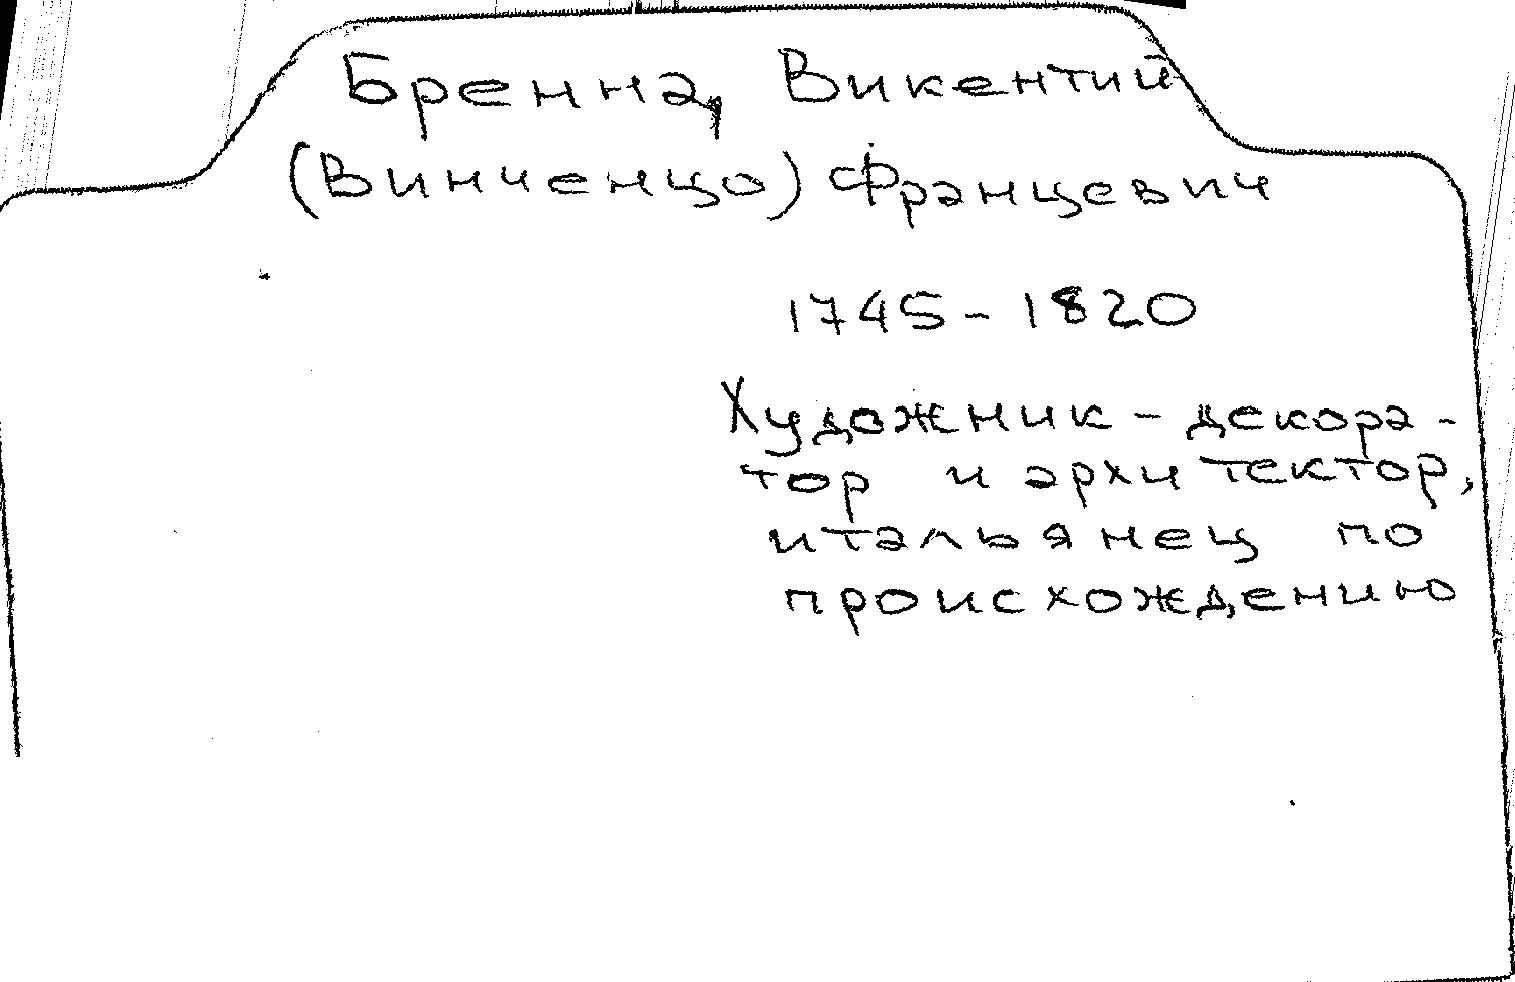 Бренна, Викентий
(Винченцо) Францевич
1745-1820
Художник-декора-
тор и архитектор,
итальянец по
происхождению